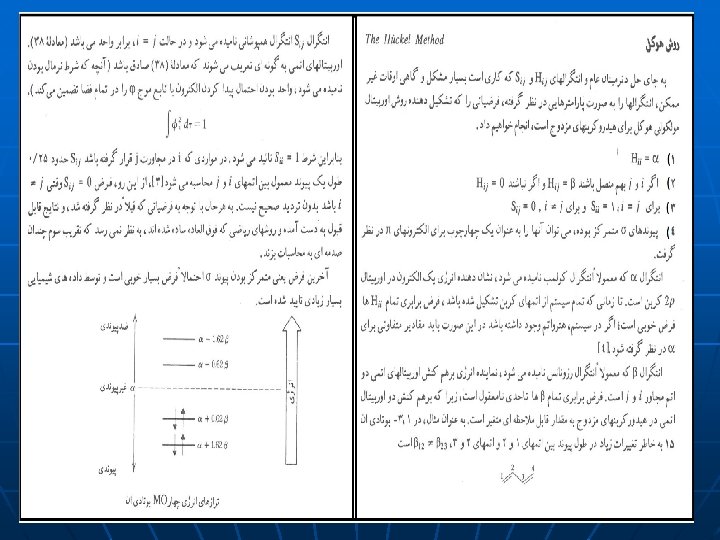 روش هوکل
The Hückel Method
به جای حل دترمینان عام و انتگرالهای Hij و Sij که کاری است بسیار مشکل و گاهی اوقات غیر
ممکن، انتگرالها را به صورت پارامترهایی در نظر گرفته، فرضیاتی را که تشکیل دهنده روش اوربیتال
مولکولی هوکل برای هیدروکربنهای مزدوج است، انجام خواهیم داد.
۱) Hii = α
۲) اگر i و j بهم متصل باشند Hij = β و اگر نباشند Hij = 0
۳) برای i = j ، Sii = ۱ و برای i ≠ j ، Sij = 0
۴) پیوندهای σ متمرکز بوده، می توان آنها را به عنوان یک چهارچوب برای الکترونهای π در نظر
گرفت.
انتگرال α که معمولاً انتگرال کولمب نامیده می شود، نشان دهنده انرژی یک الکترون در اوربیتال
2p کربن است. تا زمانی که تمام سیستم از اتمهای کربن تشکیل شده باشد، فرض برابری تمام Hii ها
فرض خوبی است؛ اگر در سیستم، هترواتم وجود داشته باشد در این صورت باید مقادیر متفاوتی برای
α در نظر گرفته شود [4]
انتگرال β که معمولاً انتگرال رزونانس نامیده می شود، نماینده انرژی برهم کنش اوربیتالهای اتمی دو
اتم مجاور i و j است. فرض برابری تمام β ها تاحدی نامعقول است، زیرا که برهم کنش دو اوربیتال
اتمی در هیدورکربنهای مزدوج به مقدار قابل ملاحظه ای متغیر است. به عنوان مثال، در ۱، ۳- بوتادی ان
به خاطر تغییرات زیاد در طول پیوند بین اتمهای ۱ و ۲ و اتمهای ۲ و ۳، β12 ≠ β23 است ۱۵
1 2 3 4
انتگرال Sij انتگرال همپوشانی نامیده می شود و در حالت i = j، برابر واحد می باشد (معادلهٔ ۳۸).
اوربیتالهای اتمی به گونه ای تعریف می شوند که معادلهٔ (۳۸) صادق باشد (آنچه که شرط نرمال بودن
نامیده می شود، واحد بودن احتمال پیدا کردن الکترون با تابع موج φ را در تمام فضا تضمین می کند).
∫φi² dτ = 1
بنابراین شرط Sii = 1 تائید می شود. در مواردی که i در مجاورت j قرار گرفته باشد Sij حدود ۰/۲۵
طول یک پیوند معمول بین اتمهای i و j محاسبه می شود [۳]، از این رو، فرض Sij = 0 وقتی i ≠
j باشد بدون تردید صحیح نیست. به هرحال با توجه به فرضیاتی که قبلاً در نظر گرفته شد، و نتایج قابل
قبول به دست آمده و روشهای ریاضی که فوق العاده ساده شده اند، به نظر نمی رسد که تقریب سوم چندان
صدمه ای به محاسبات بزند.
آخرین فرض یعنی متمرکز بودن پیوند σ احتمالاً فرض بسیار خوبی است و توسط داده های شیمیایی
بسیار زیادی تایید شده است.
ضدپیوندی
α − 1.62β
α − 0.62β
غیرپیوندی α
α + 0.62β
α + 1.62β
پیوندی
انرژی
ترازهای انرژی چهار MO بوتادی ان